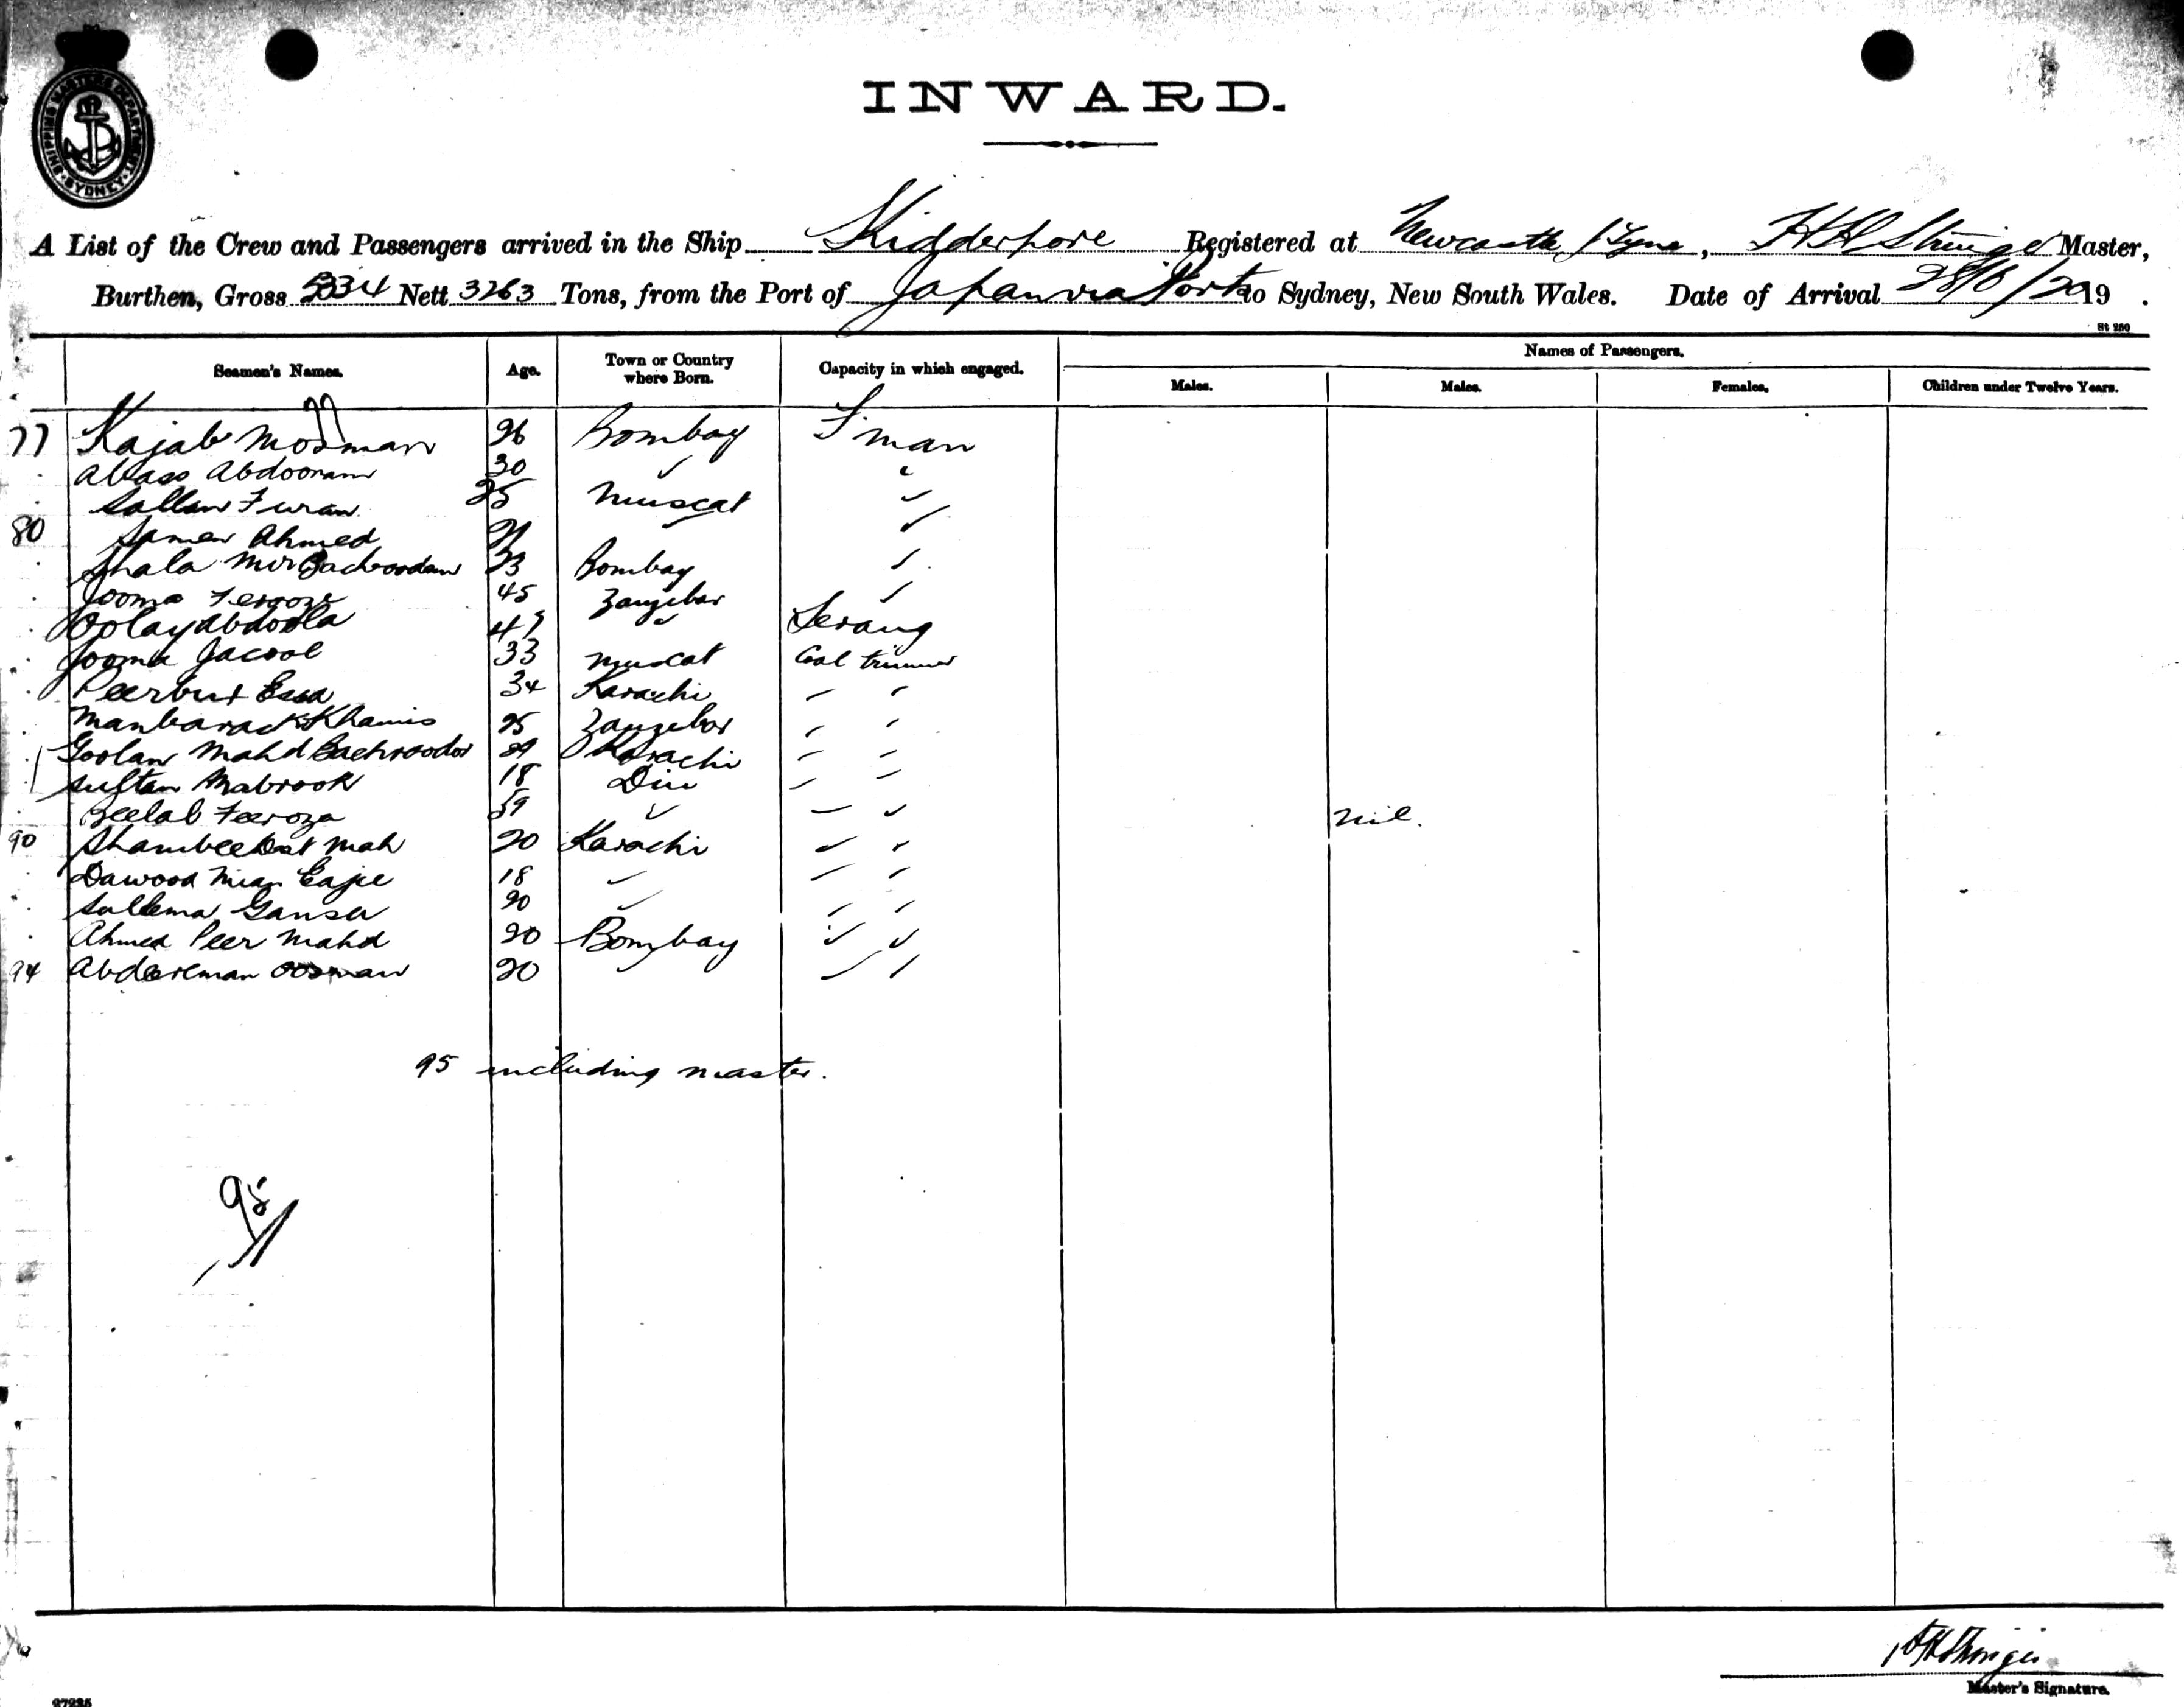 SHIPPING MASTER'S DEPARTMENT
SYDNEY
INWARD.
A List of the Crew and Passengers arrived in the Ship Kidderpore Registered at Newcastle /Tyne, Master,
Burthen, Gross 5334 Nett 3263 Tons, from the Port of Japan via Ports to Sydney, New South Wales. Date of Arrival /2019 .
St 250
Seamen's Names. Age. Town or Country where Born. Capacity in which engaged. Names of Passengers.
Males. Males. Females. Children under Twelve Years.
77
77 Kajab Mosman 26 Bombay F'man
Abass 30 ✓ "
Sallam 25 Muscat "
80 Ahmed ✓ "
Mir 33 Bombay "
Jooma 45 Zanzibar "
Abdoola ✓ Serang
Jooma 33 Muscat Coal trimmer
Peerbux Essa 34 Karachi " "
Manbarack Khamis 25 Zanzibar " "
Goolam Mahd Karachi " "
Sultan Mabrook 18 Diu " "
Beelal Feeroza ✓ " "
Nil.
90 Mah 20 Karachi " "
Dawood 18 " " "
20 " " "
Ahmed Peer Mahd 20 Bombay " "
94 20 " " "
95 including master.
95
Master's Signature.
27235